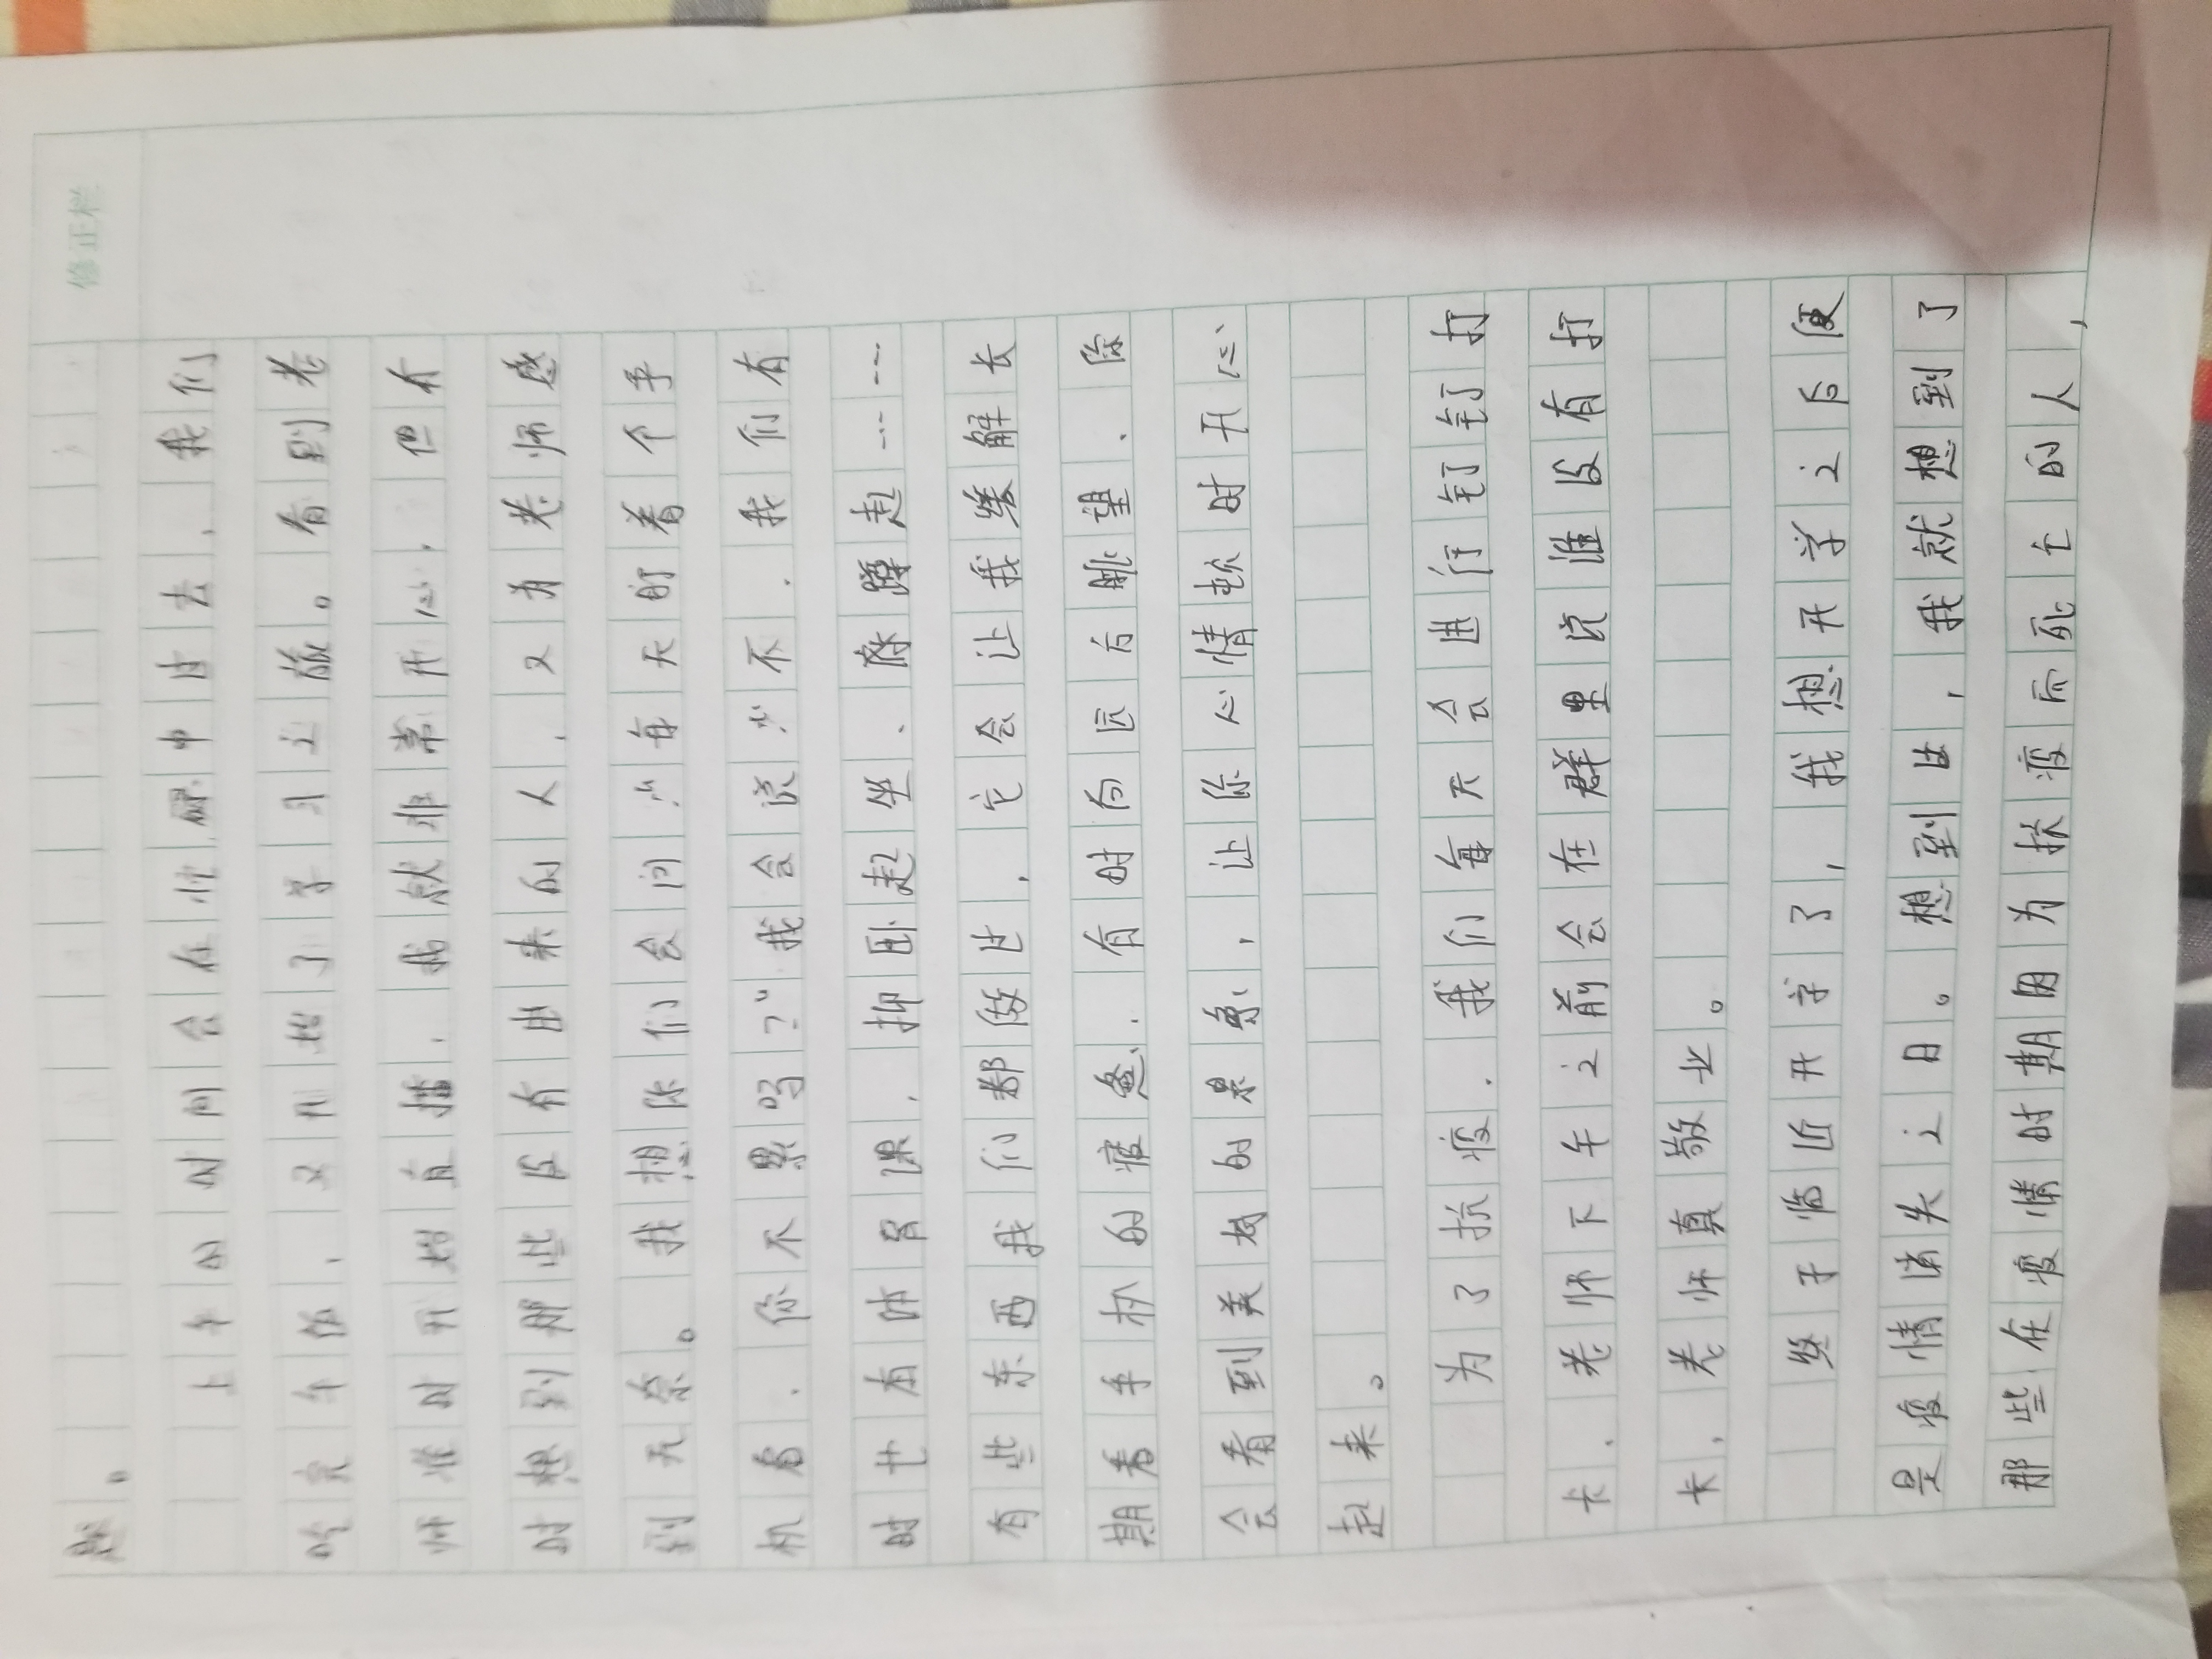 修正栏
趣。
上午的时间会在忙碌中过去,我们
吃完午饭,又开始了学习之旅。看到老
师准时开始直播,我就非常开心,但有
时想到那些没有出来的人,又为老师感
到无奈。我想你们会问:"每天盯着个手
机看,你不累吗?"我会说:"不,我们有
时也有体育课,仰卧起坐、席蹲起……
有些东西我们都做过,它会让我缓解长
期看手机的疲惫,有时向远方眺望,你
会看到美好的景象,让你心情顿时开心
起来。
为了抗疫,我们每天会进行钉钉打
卡,老师下午之前会在群里说谁没有打
卡,老师真敬业。
终于临近开学了,我想开学之后便
是疫情消失之日。想到此,我就想到了
那些在疫情时期因为抗疫而死亡的人,